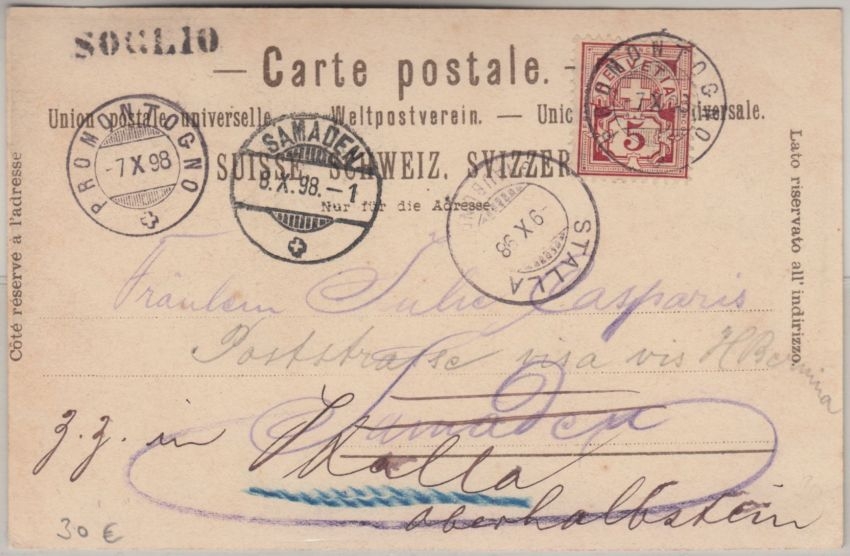 SOGLIO
Carte postale.
Union postale universelle. — Weltpostverein. — Unione postale universale.
SUISSE. SCHWEIZ. SVIZZERA.
Nur für die Adresse.
Côté réservé à l'adresse
Lato riservato all' indirizzo.
PROMONTOGNO
-7 X 98
SAMADEN
8.X.98.-1
STALLA
-9 X 98
HELVETIA
5
PROMONTOGNO
7 X
Fräulein Julie Casparis
Poststrasse visa vis H Bernina
Samaden
z. z. in Stalla
oberhalbstein
30 €